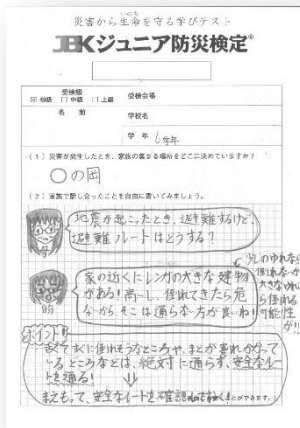 災害から生命を守る学びテスト
いのち
JBKジュニア防災検定®
受検級
初級 中級 上級
受検会場
名前
学校名
学年 6学年
(1)災害が発生したとき、家族の集まる場所をどこに決めていますか?
○の国
(2)家族で話し合ったことを自由に書いてみましょう。
地震が起こったとき、避難するけど、
避難ルートはどうする?
家の近くにレンガの大きな建物
がある!高いし、倒れてきたら危
ないから、そこは通らない方が良いね!
少しのゆれなら
倒れないが
大きなゆれな
ら倒れる
可能性
が!!
自分
ポイント!!
古くてすぐに倒れそうなところや、
いるところなどは、絶対に通らず、安全なルー
トを通る!
まえもって、安全なルートを確認しておく
ことができます。